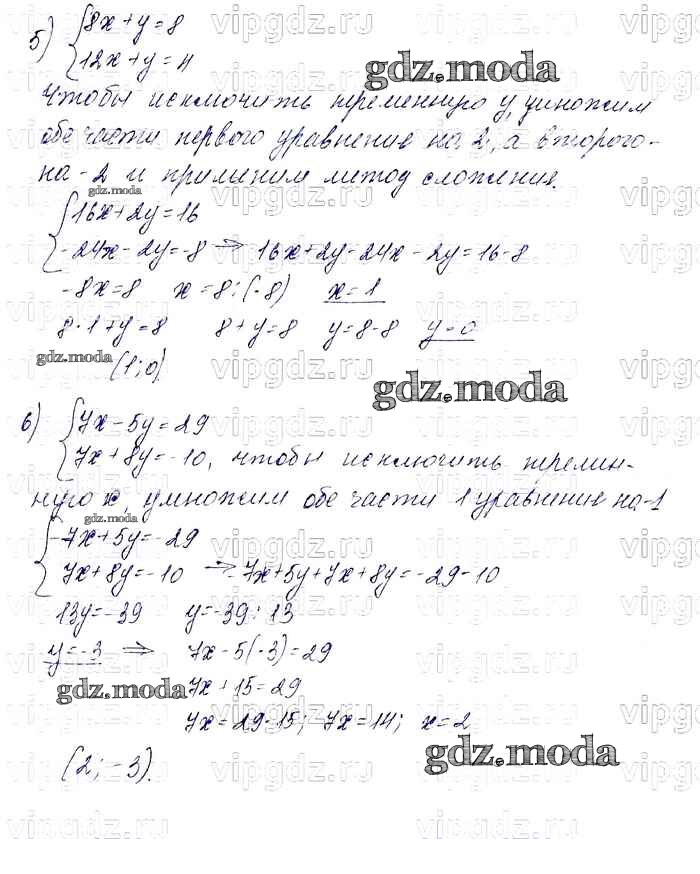 5) {8x + y = 8
{12x + y = 4
gdz.moda
Чтобы исключить переменную y, умножим
обе части первого уравнение на 2, а второго -
на -2 и применим метод сложения.
gdz.moda
{16x + 2y = 16
{-24x - 2y = -8 ⇒ 16x + 2y - 24x - 2y = 16 - 8
-8x = 8 x = 8 : (-8) x = 1
8 · 1 + y = 8 8 + y = 8 y = 8 - 8 y = 0
gdz.moda (1; 0)
gdz.moda
6) {7x - 5y = 29
{7x + 8y = -10, чтобы исключить перемен-
ную x, умножим обе части 1 уравнение на -1
gdz.moda
{-7x + 5y = -29
{7x + 8y = -10 ⇒ -7x + 5y + 7x + 8y = -29 - 10
13y = -39 y = -39 : 13
y = -3 ⇒ 7x - 5(-3) = 29
gdz.moda 7x + 15 = 29
7x = 29 - 15; 7x = 14; x = 2
gdz.moda
(2; -3).
vipgdz.ru